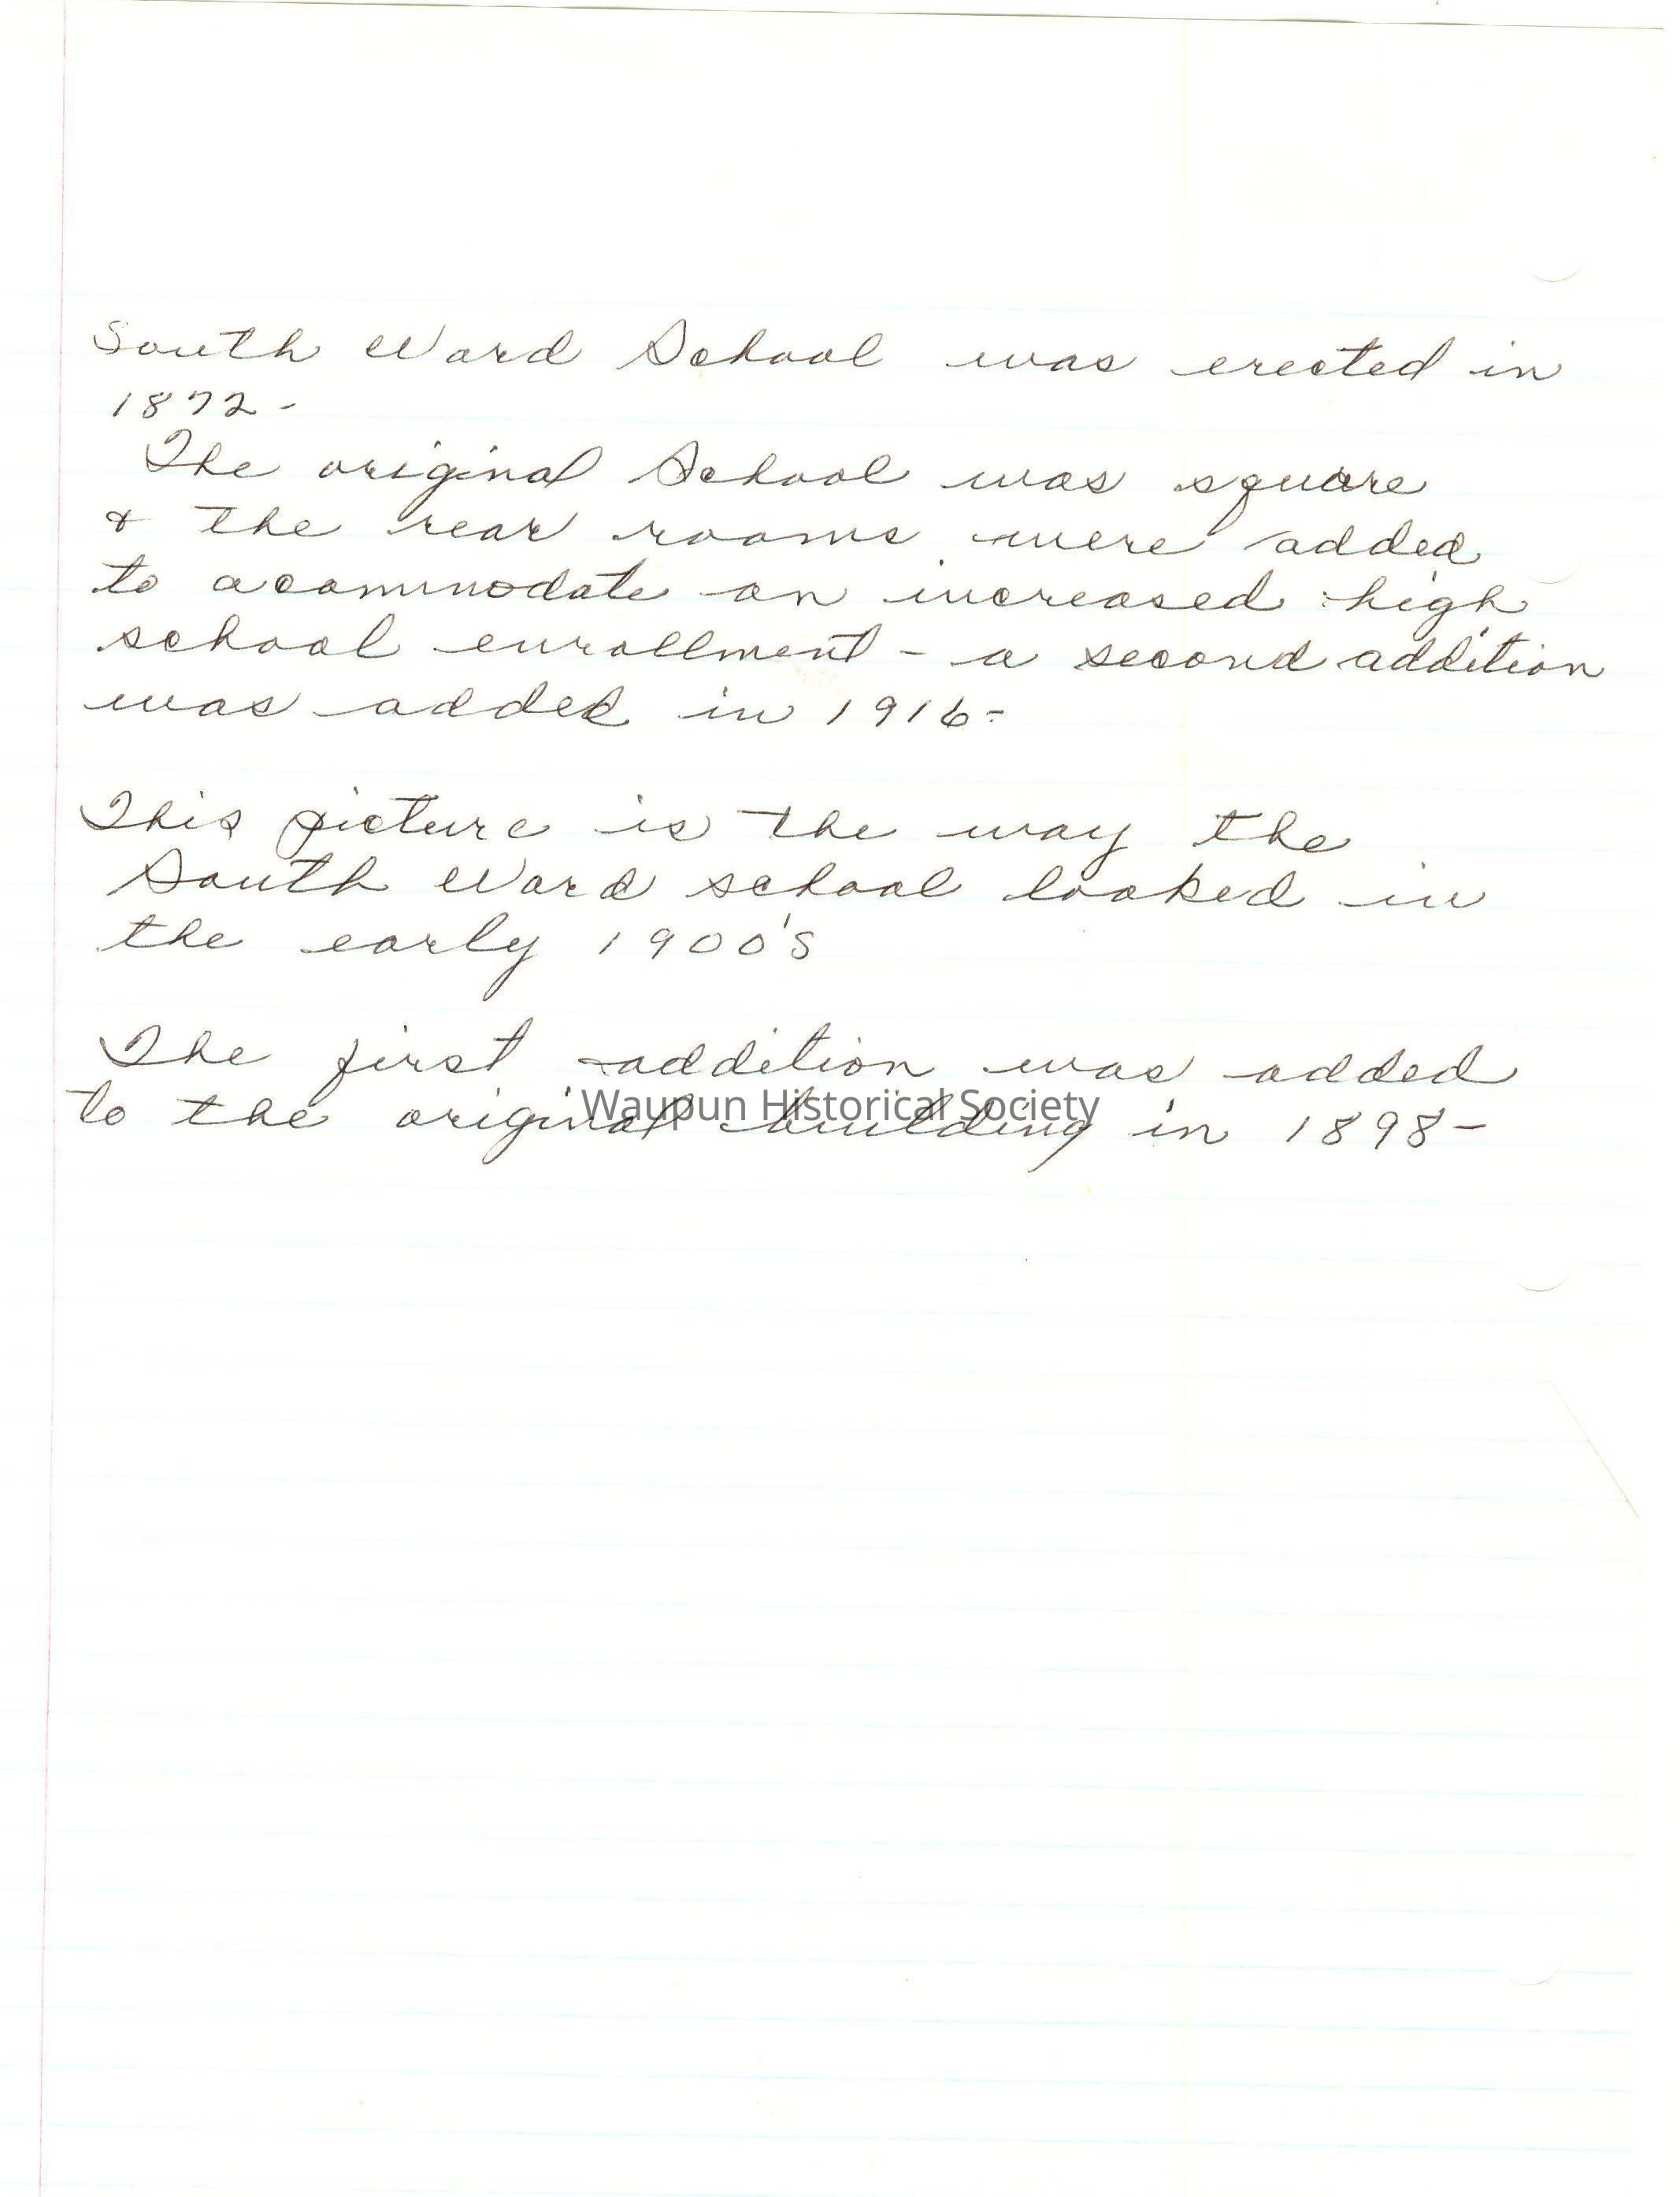 South Ward School was erected in
1872-
The original School was square
& the rear rooms were added
to acommodate an increased high
school enrollment - a second addition
was added in 1916-
This picture is the way the
South Ward school looked in
the early 1900's
The first addition was added
to the original building in 1898-
Waupun Historical Society